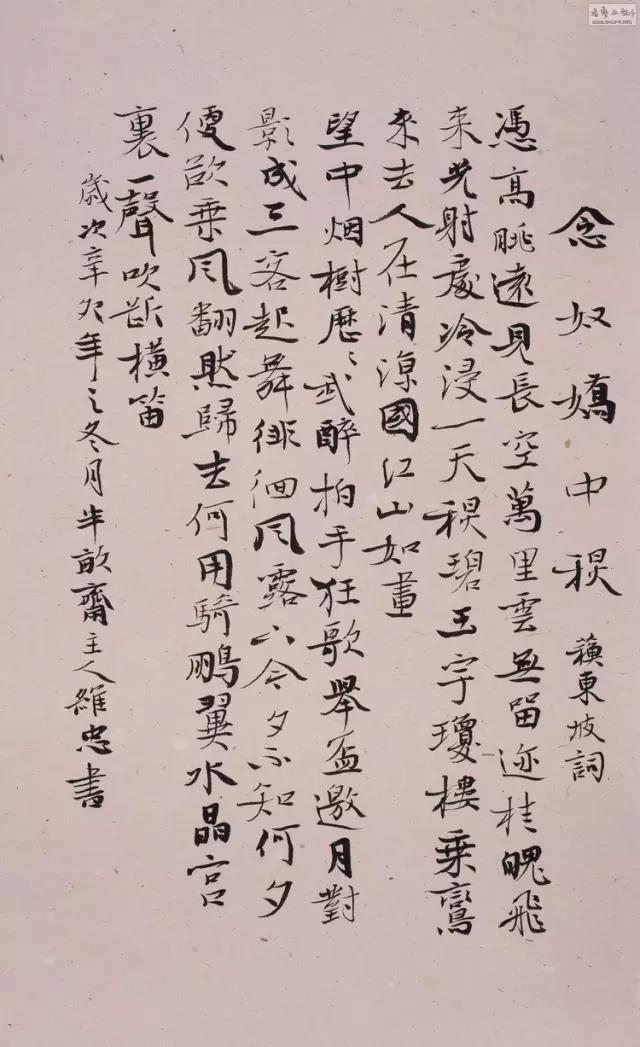 念奴嬌中秋 蘇東坡詞
憑高眺遠見長空萬里雲無留迹桂魄飛
来光射處冷浸一天秋碧玉宇瓊樓乘鸞
来去人在清涼國江山如畫
望中烟樹歷〻我醉拍手狂歌舉盃邀月對
影成三客起舞徘徊風露下今夕不知何夕
便欲乘風翻然歸去何用騎鵬翼水晶宫
裏一聲吹断横笛
歲次辛卯年之冬月半畝齋主人維忠書